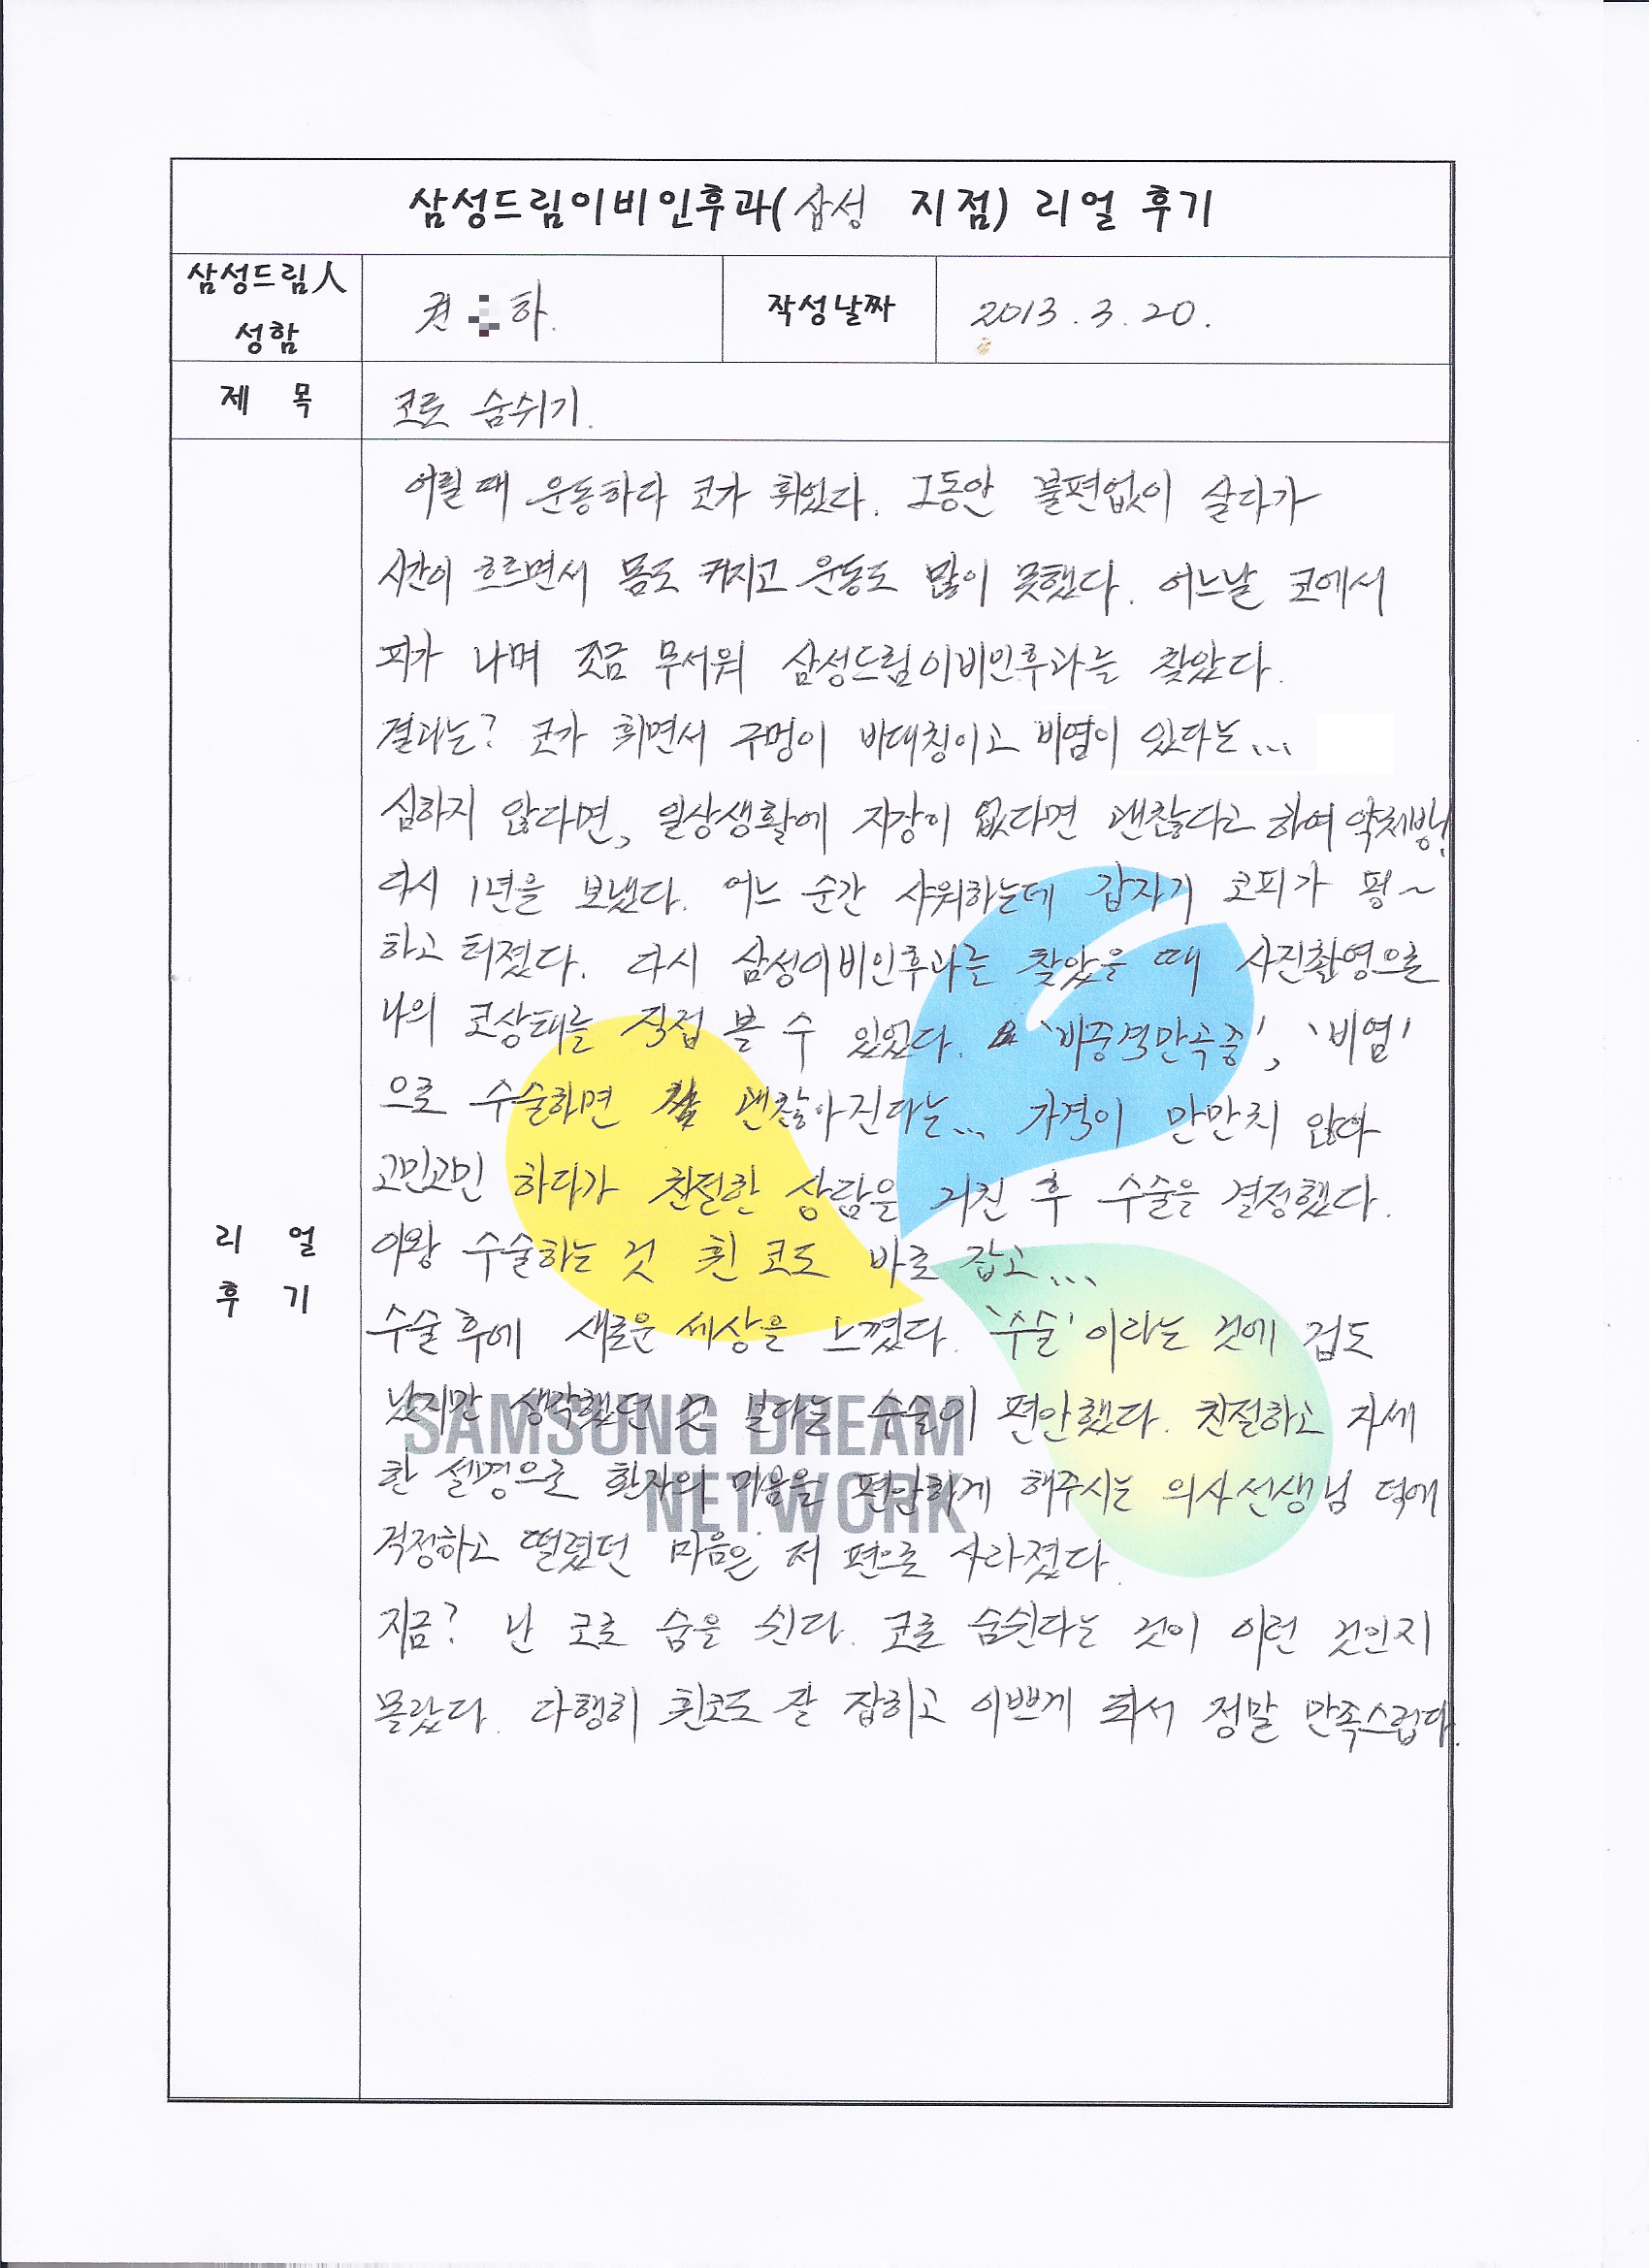 삼성드림이비인후과(삼성 지점) 리얼 후기
삼성드림人
성함
권 하.
작성날짜
2013.3.20.
제 목
코로 숨쉬기.
어릴때 운동하다 코가 휘었다. 그동안 불편없이 살다가
시간이 흐르면서 몸도 커지고 운동도 많이 못했다. 어느날 코에서
피가 나며 조금 무서워 삼성드림이비인후과를 찾았다.
결과는? 코가 휘면서 구멍이 비대칭이고 비염이 있다는...
심하지 않다면, 일상생활에 지장이 없다면 괜찮다고 하여 약처방!
다시 1년을 보냈다. 어느 순간 샤워하는데 갑자기 코피가 펑~
하고 터졌다. 다시 삼성이비인후과를 찾았을 때 사진촬영으로
나의 코상태를 직접 볼 수 있었다. '비중격만곡증', '비염'
으로 수술하면 괜찮아진다는... 가격이 만만치 않아
고민고민 하다가 친절한 상담을 거친 후 수술을 결정했다.
이왕 수술하는 것 휜 코도 바로 잡고...
수술후에 새로운 세상을 느꼈다. '수술'이라는 것에 겁도
났지만 생각했던 것 보다는 수술이 편안했다. 친절하고 자세
한 설명으로 환자의 마음을 편안하게 해주시는 의사선생님 덕에
걱정하고 떨렸던 마음은 저 편으로 사라졌다.
지금? 난 코로 숨을 쉰다. 코로 숨쉰다는 것이 이런 것인지
몰랐다. 다행히 휜코도 잘 잡히고 이쁘게 되서 정말 만족스럽다.
리 얼
후 기
SAMSUNG DREAM
NETWORK